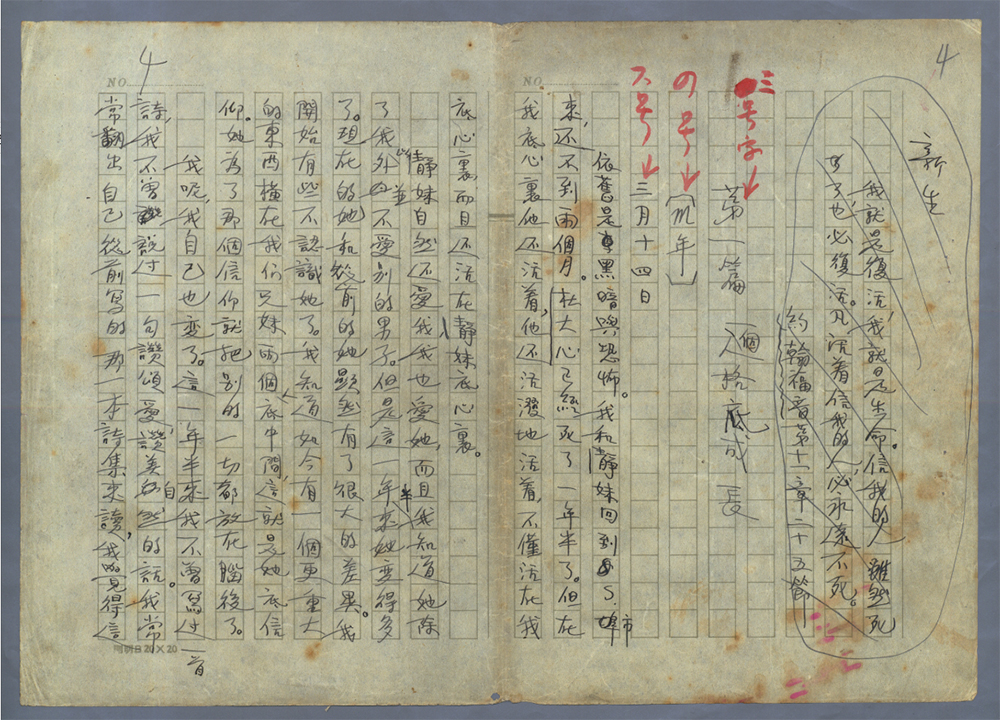 4
新生
我就是復活,我就是生命。信我的人雖然死
了也必復活。凡活着信我的人必永遠不死。
約翰福音第十一章二十五節
三号字↓
第一篇 個人格底成長
の号↓
年〕
六号↓
三月十四日
依舊是黑暗與恐怖。我和靜妹回到S市
來,还不到兩個月。杜大心已經死了一年半了。但在
我底心裏他还活着,他还活潑地活着,不僅活在我
4
NO.
NO.
底心裏而且还活在靜妹底心裏。
靜妹自然还愛我我也愛她,而且我知道她除
了我以外並不愛别的男子。但是這一年半來她變得多
了。現在的她和從前的她顯然有了很大的差異。我
開始有些不認識她了。我知道如今有一個更重大
的東西橫在我们兄妹兩個底中間,這就是她底信
仰。她為了那個信仰就把别的一切都放在腦後了。
我呢,我自己也變了。這一年半來我不曾寫过一首
詩,我不曾説过一句讚頌愛,讚美自然的話。我常
常翻出自己從前寫的那一本詩集來讀,我覺得這
20×20